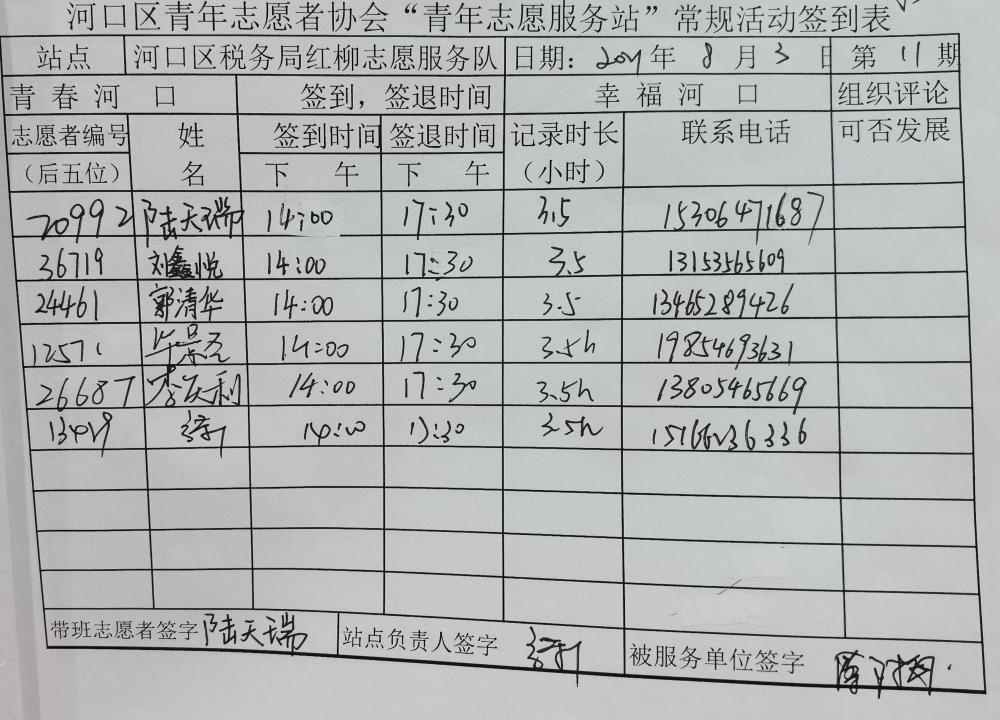 河口区青年志愿者协会“青年志愿服务站”常规活动签到表
站点 河口区税务局红柳志愿服务队 日期: 2021年 8 月 3 日 第 11 期
青春河 口 签到,签退时间 幸福河 口 组织评论
志愿者编号 姓 签到时间 签退时间 记录时长 联系电话 可否发展
(后五位) 名 下 午 下 午 (小时)
20992 陆天瑞 14:00 17:30 3.5 15306471687
36719 刘鑫悦 14:00 17:30 3.5 13153565609
24461 郭清华 14:00 17:30 3.5 13465289426
12571 14:00 17:30 3.5h 19854693631
26687 14:00 17:30 3.5h 13805465669
14:00 17:30 3.5h 15166236336
带班志愿者签字 陆天瑞 站点负责人签字 被服务单位签字